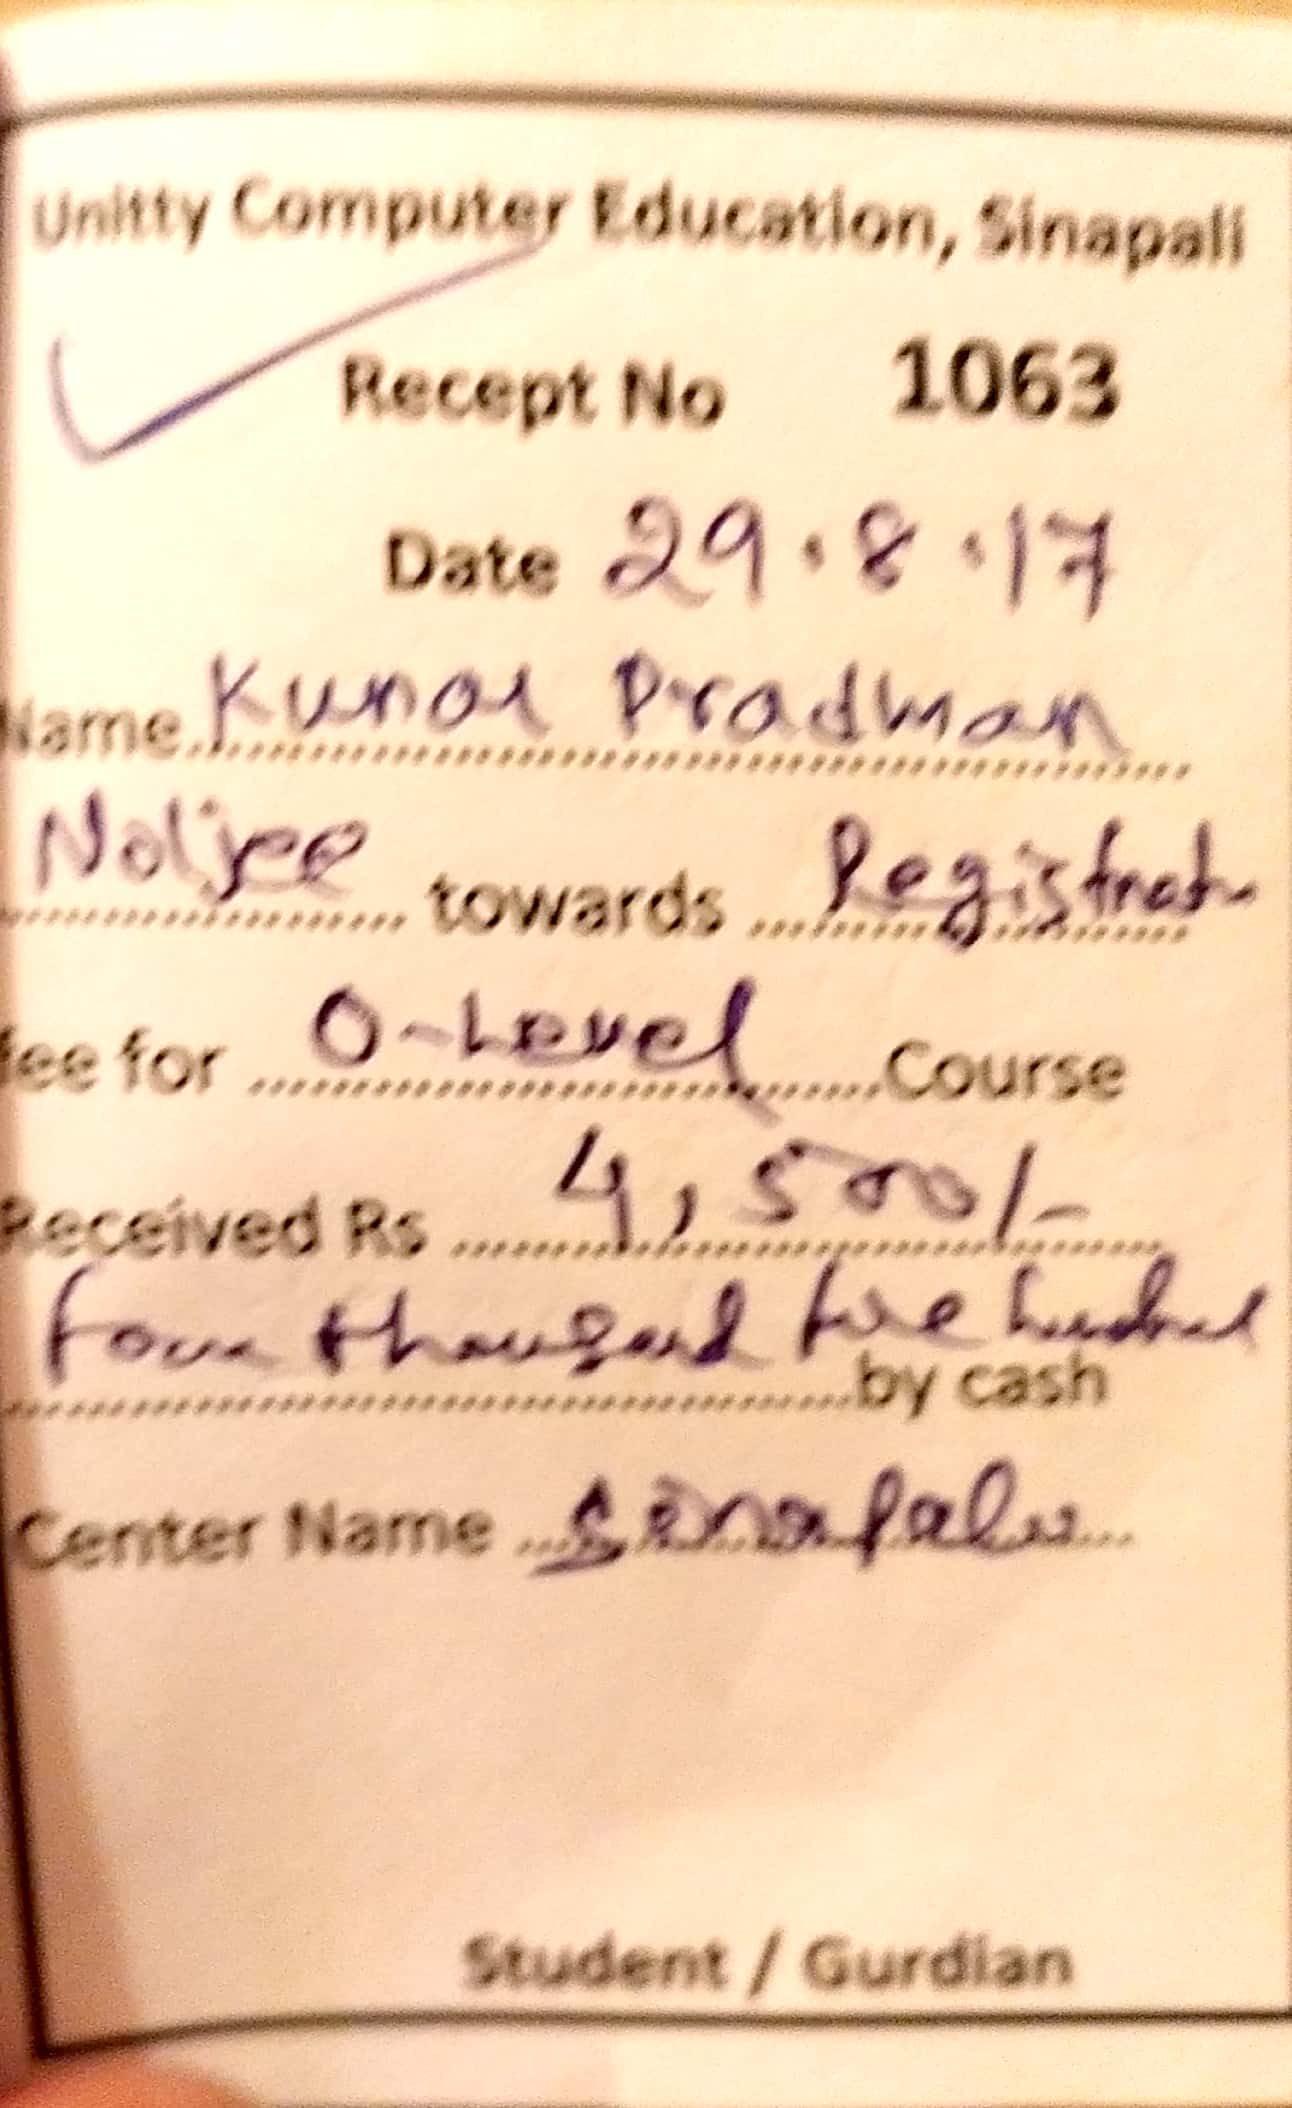 Unitty Computer Education, Sinapali
Recept No 1063
Date 29.8.17
Name Kunal Pradhan
towards Registratn
fee for O-Level Course
Received Rs 4,500/-
four thousand five hundred
by cash
Center Name Sinapali
Student / Gurdian